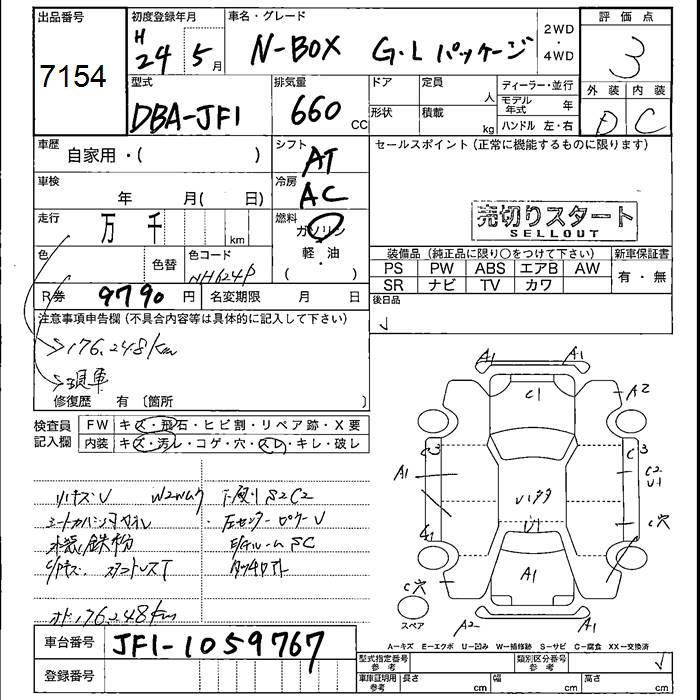 出品番号
7154
初度登録年月
H
24 5月
車名・グレード
N-BOX G・Lパッケージ
2WD
・
4WD
評価点
3
外装 内装
D C
型式
DBA-JF1
排気量
660 CC
ドア
形状
定員 人
積載 kg
ディーラー・並行
モデル年式 年
ハンドル 左・右
車歴
自家用・( )
シフト
AT
車検
年 月( 日)
冷房
AC
走行
万 千 km
燃料
ガソリン
軽・油
( )
色
色替
色コード
NH624P
R券
9790 円
名変期限 月 日
セールスポイント(正常に機能するものに限ります)
売切りスタート
SELLOUT
装備品(純正品に限り○をつけて下さい)
PS PW ABS エアB AW
SR ナビ TV カワ
新車保証書
有・無
後日品
注意事項申告欄(不具合内容等は具体的に記入して下さい)
176,248km
修復歴 有 〔箇所 〕
検査員
記入欄
FW キズ・飛石・ヒビ割・リペア跡・X要
内装 キズ・汚レ・コゲ・穴・スレ・キレ・破レ
リキズU
下廻りS2C2
鉄粉
176,248km
A1 A1
C1
A2
C3 C3
A1
C2
U1
U1
C穴
A1
C穴
スペア
A2 A1
A=キズ E=エクボ U=凹み W=補修跡 S=サビ C=腐食 XX=交換済
車台番号
JF1-1059767
登録番号
型式指定番号
参考
類別区分番号
参考
車庫証明用
参考
長さ cm 幅 cm 高さ cm